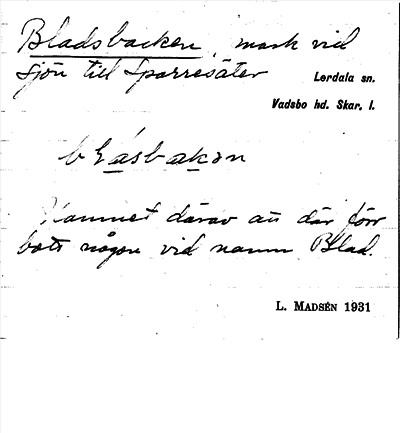 Bladsbacken, mark vid
sjön till Sparresäter
Lerdala sn.
Vadsbo hd. Skar. l.
blásbakan
Namnet därav att där förr
bott någon vid namn Blad.
L. MADSÉN 1931